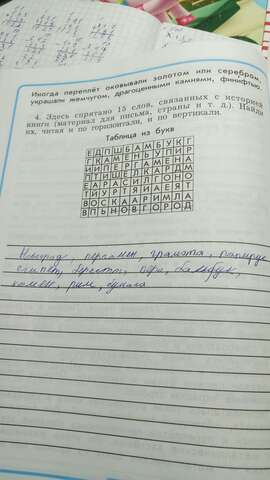 Иногда переплёт оковывали золотом или серебром,
украшали жемчугом, драгоценными камнями, финифтью.
4. Здесь спрятано 15 слов, связанных с историей
книги (материал для письма, страны и т. д.). Найди
их, читая и по горизонтали, и по вертикали.
Таблица из букв
ЕДПШБАМБУКГ
ГКАМЕНЬУПИР
ИИПЕРГАМЕНА
ПТИШЕЛКАРДМ
ЕАРАСИЛГОНО
ТЙУРТЯИАЕЯТ
ВОСКААРИМЛА
ВПЬНОВГОРОД
Новгород, пергамен, грамота, папирус
египет, береста, перо, бамбук,
камень, рим, бумага